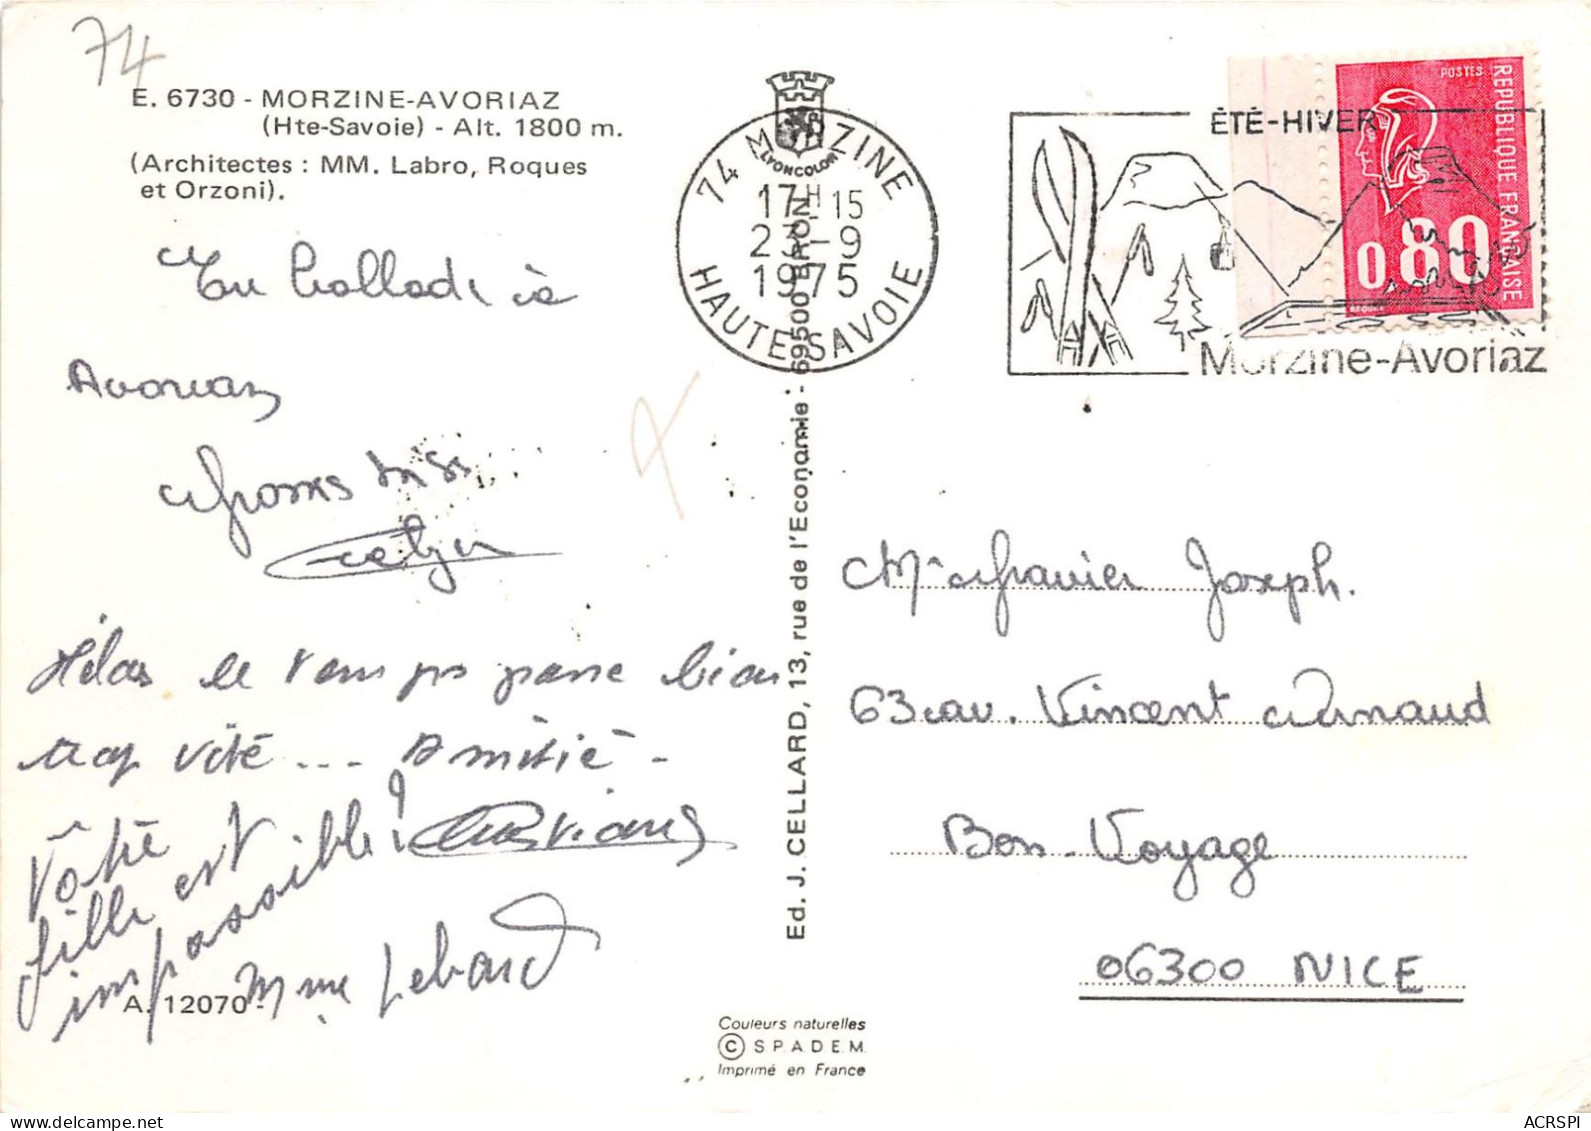 74
E. 6730 - MORZINE-AVORIAZ
(Hte-Savoie) - Alt. 1800 m.
(Architectes : MM. Labro, Roques
et Orzoni).
en ballade à
Avoriaz
Grosses bises
Hélas le temps passe bien
trop vite ... Amitié -
Christiane
Vôtre
fille est
impossible !
Mme Lebard
A. 12070 -
LYONCOLOR
74 MORZINE
17H15
23-9
1975
HAUTE-SAVOIE
ÉTÉ-HIVER
Morzine-Avoriaz
POSTES
REPUBLIQUE FRANÇAISE
0,80
BEQUET
Ed. J. CELLARD, 13, rue de l'Economie - 69500 BRON
Mr Gravier Joseph.
63 av. Vincent Arnaud
Bon-Voyage
06300 NICE
Couleurs naturelles
© S.P.A.D.E.M.
Imprimé en France
ACRSPI